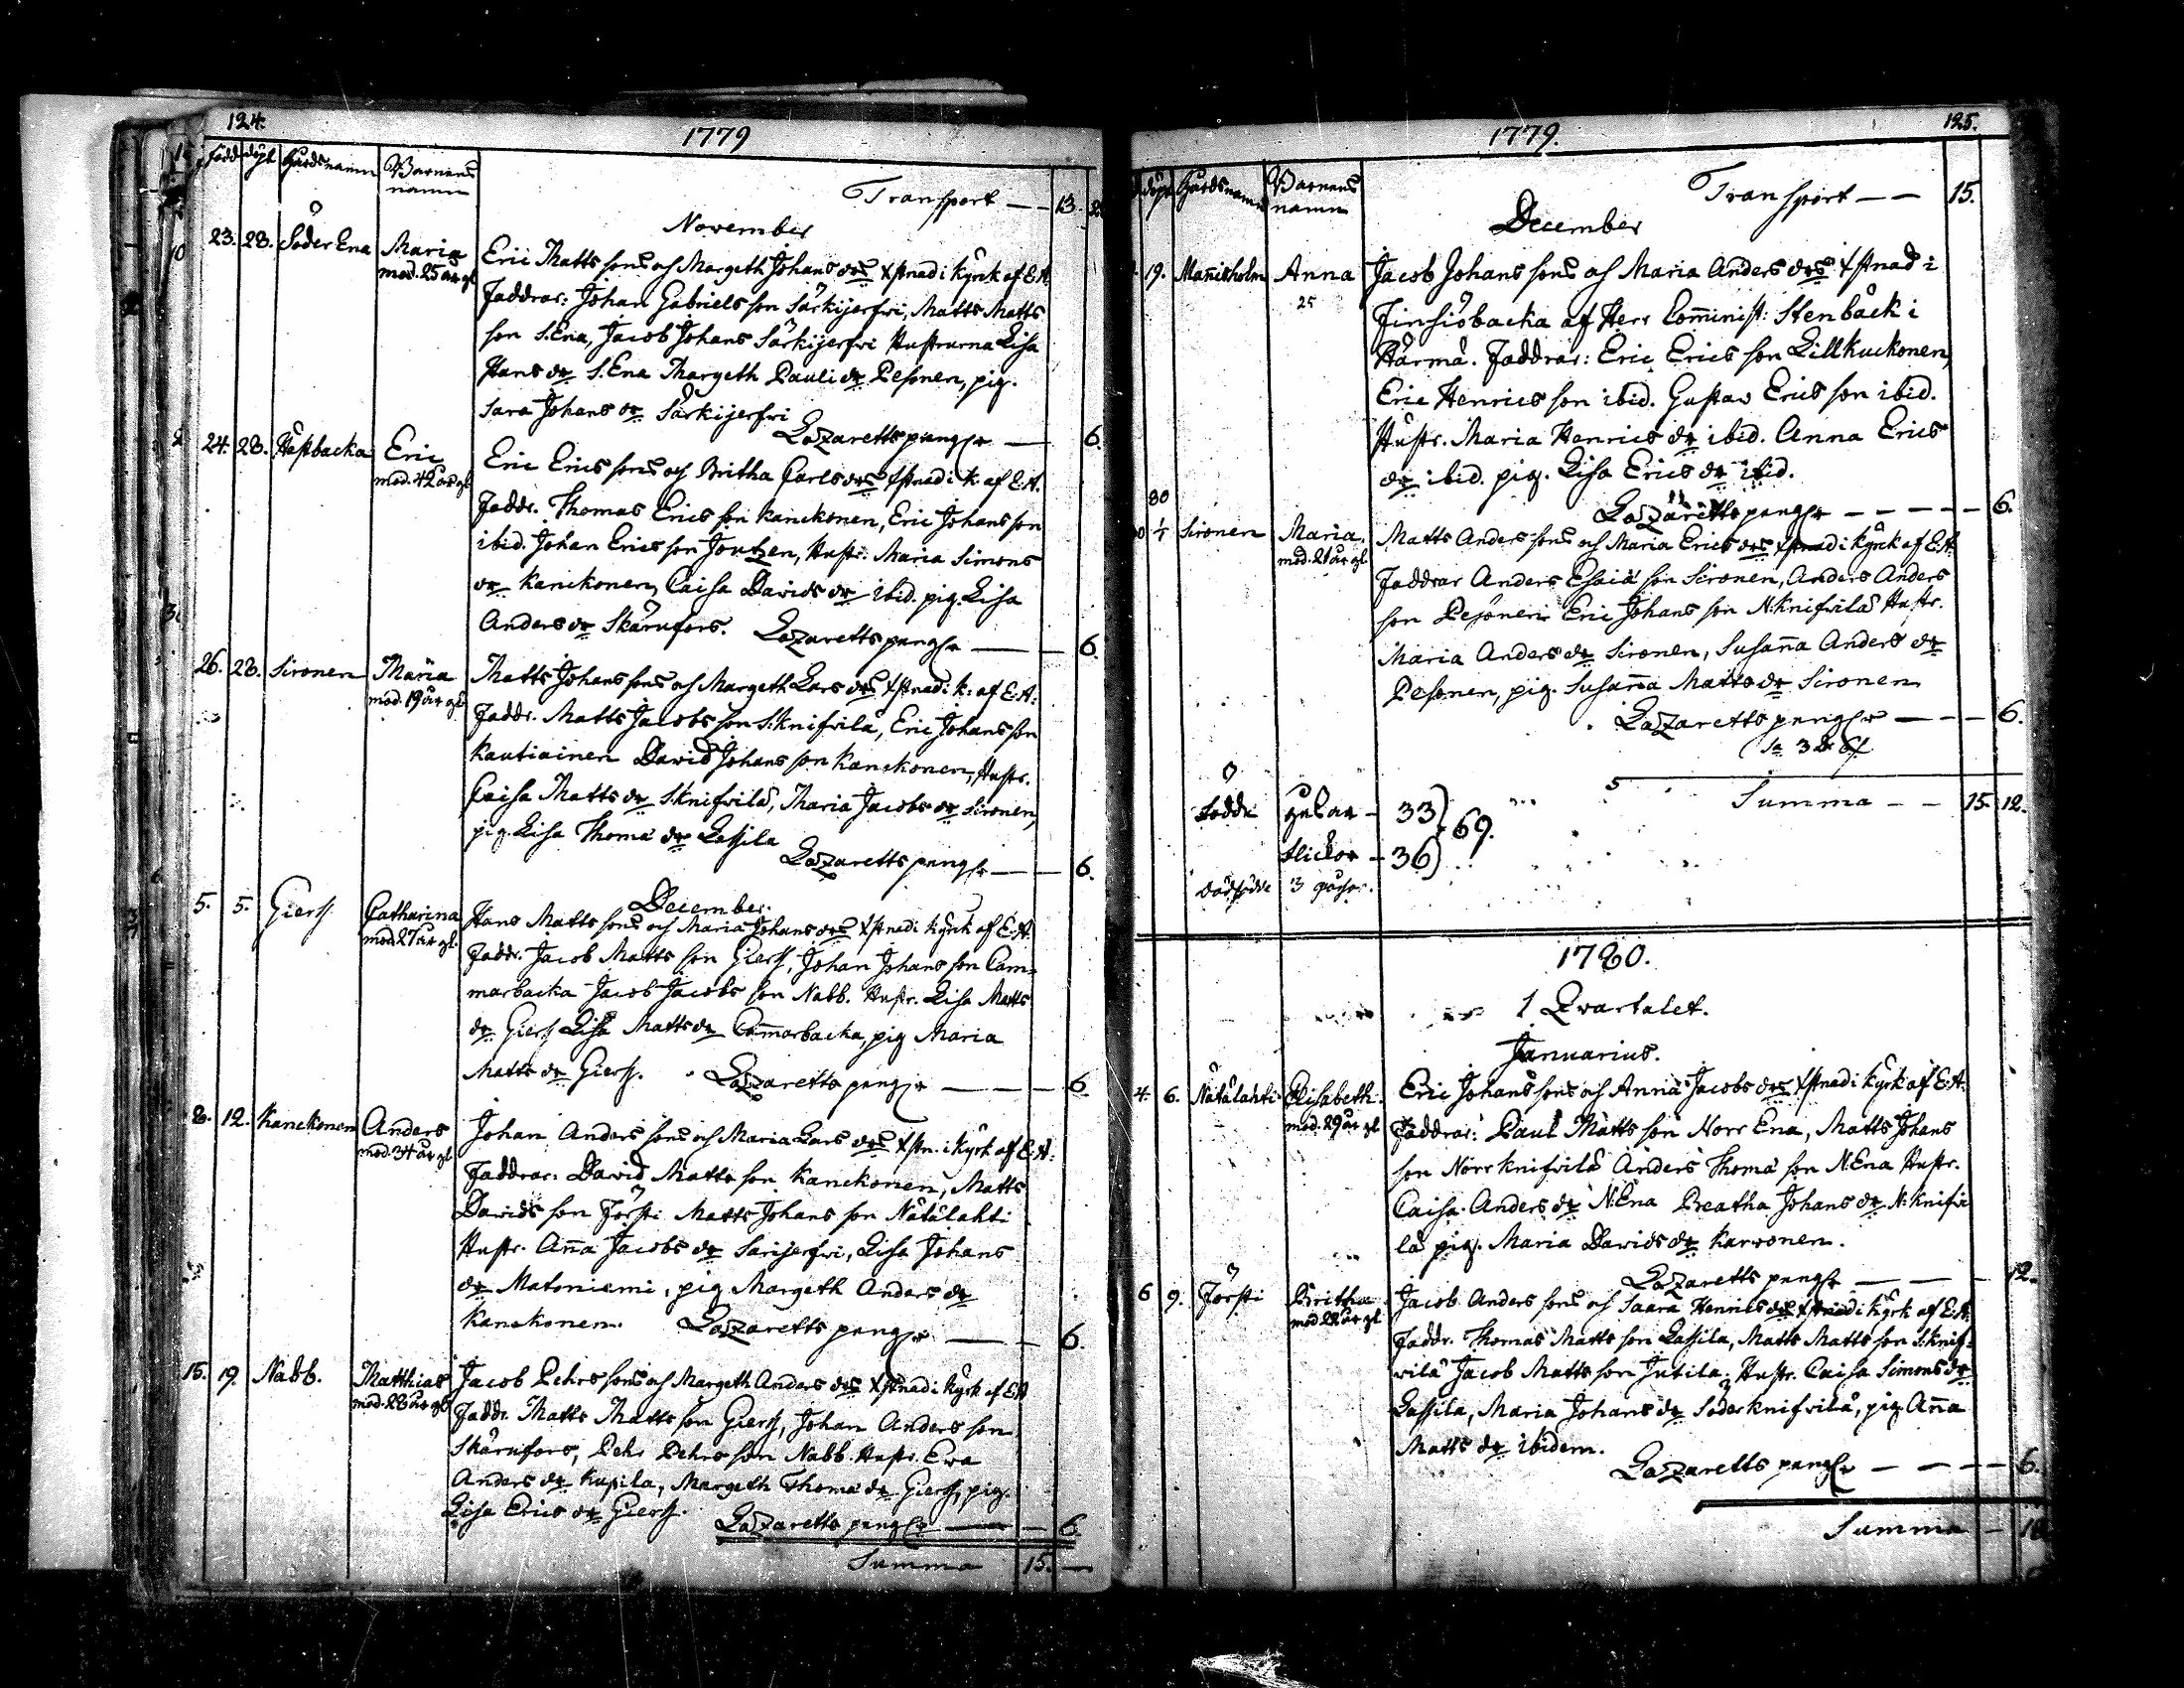 124.
1779
född döpt Gårdsnamn Barnens namn
Transport — — 13.
November
23. 28. Söder Ena Maria mod. 25 år gl
Eric Matts sons och Margeth Johans drs xstnad i Kyrk af E:A:
Faddrar: Johan Gabriels son Särkijerfvi, Matts Matts
son S. Ena, Jacob Johans Särkijerfvi Hustrurna Lisa
Hans dr S. Ena Margeth Pauli dr Pesonen, pig.
Sara Johans dr Särkijerfvi
Lazaretts pengar — 6.
24. 28. Hästbacka Eric mod. 42 år gl
Eric Erics sons och Britha Carls drs xstnad i k. af E:A.
Faddr. Thomas Erics son Kanckonen, Eric Johans son
ibid. Johan Erics son Joutzen, Hustr. Maria Simons
dr Kanckonen, Caisa Davids dr ibid. pig. Lisa
Anders dr Skärufors. Lazaretts pengar — — 6.
26. 28. Sironen Maria mod. 19 år gl
Matts Johans sons och Margeth Lars drs xstnad i k: af E:A:
Faddr. Matts Jacobs son S: Knifvilä, Eric Johans son
Kautiainen David Johans son Kanckonen, Hustr.
Caisa Matts dr S. Knifvilä, Maria Jacobs dr Sironen,
pig. Lisa Thomæ dr Lassila
Lazaretts pengar — — 6.
December.
5. 5. Giers Catharina mod 27 år gl.
Hans Matts sons och Maria Johans drs xstnad i Kyrk af E:A:
Faddr. Jacob Matts son Giers, Johan Johans son Cam=
marbacka Jacob Jacobs son Nabb. Hustr. Lisa Matts
dr Giers Lisa Matts dr Cam̄arbacka, pig Maria
Matts dr Giers. Lazaretts pengar — — — 6
8. 12. Kanckonen Anders mod. 34 år gl
Johan Anders sons och Maria Lars drs xstn. i Kyrk af E:A:
Faddrar: David Matts son Kanckonen, Matts
Davids son Försti Matts Johans son Nätälahti
Hustr. Anna Jacobs dr Särijerfvi, Lisa Johans
dr Matoniemi, pig Margeth Anders dr
Kanckonen. Lazaretts pengar — — 6.
15. 19. Nabb. Matthias mod. 28 år gl
Jacob Pehrs sons och Margeth Anders drs xstnad i Kyrk af E:A
Faddr. Matts Matts son Giers, Johan Anders son
Skärufors, Pehr Pehrs son Nabb. Hustr. Eva
Anders dr Kupila, Margeth Thomæ dr Giers, pig.
Lisa Erics dr Giers. Lazaretts pengar — — 6.
Summa 15. —
125.
1779.
döpt Gårdsnamn Barnens namn
Transport — — 15.
December
19. Man̄ikholm Anna 25
Jacob Johans sons och Maria Anders drs xstnad i
Finsiöbacka af Herr Com̄inist: Stenbäck i
Härmä. Faddrar: Eric Erics son Lillkuckonen,
Eric Henrics son ibid. Gustav Erics son ibid.
Hustr. Maria Henrics dr ibid. Anna Erics
dr ibid. pig. Lisa Erics dr ibid.
Lazaretts pengar — — — — 6.
80
1/1 Sironen Maria. mod. 21 år gl
Matts Anders sons och Maria Erics drs xstnad i Kyrk af E:A:
Faddrar Anders Esaiæ son Sironen, Anders Anders
son Pesonen Eric Johans son N: Knifvilä Hustr.
Maria Anders dr Sironen, Susan̄a Anders dr
Pesonen, pig. Susan̄a Matts dr Sironen
Lazaretts pengar — — — 6.
Summa — — 15. 12.
Födde gossar — 33
69.
flickor — 36
dödfödde 3 gossar.
1780.
1 Qvartalet.
Januarius.
4. 6. Nätälahti Elisabeth. mod. 29 år gl
Eric Johans sons och Anna Jacobs drs xstnad i Kyrk af E:A.
Faddrar: Paul Matts son Norr Ena, Matts Johans
son Norr Knifvilä Anders Thomæ son N: Ena Hustr.
Caisa Anders dr N: Ena Breatha Johans dr N: Knifvi
lä pig. Maria Davids dr Karvonen.
Lazaretts pengar — — — 12.
6 9. Försti Britha mod. 22 år gl
Jacob Anders sons och Saara Henrics drs xstnad i Kyrk af E:A.
Faddr. Thomas Matts son Lassila, Matts Matts son S: Knif=
vilä Jacob Matts son Jutila, Hustr. Caisa Simons dr
Lassila, Maria Johans dr Söderknifvilä, pig An̄a
Matts dr ibidem.
Lazaretts pengar — — — — 6.
Summa — 18